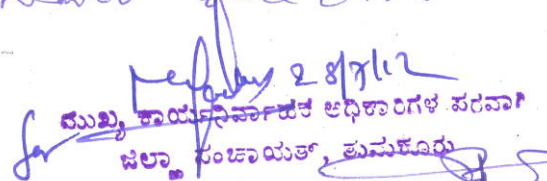 28/7/12
ಮುಖ್ಯ ಕಾರ್ಯನಿರ್ವಾಹಕ ಅಧಿಕಾರಿಗಳ ಪರವಾಗಿ
for
ಜಿಲ್ಲಾ ಪಂಚಾಯತ್, ತುಮಕೂರು